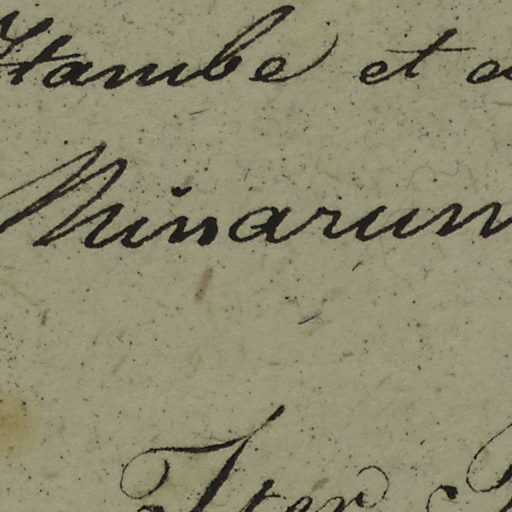 Itambe et
Minarum
Iter